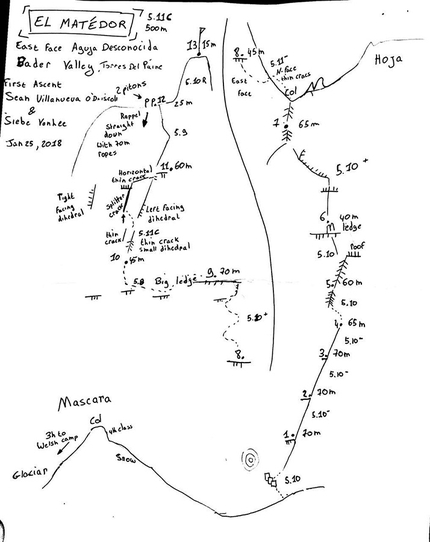 EL MATÉDOR
5.11c
500m
East Face Aguja Desconocida
Bader Valley Torres Del Paine
First Ascent
Sean Villanueva O'Driscoll
&
Siebe Vanhee
Jan 25, 2018
13 15m
6.10R
2 pitons
P.P. 12
25m
Rappel
Straight
down
With 70m
ropes
5.9
11. 60m
Horizontal
thin crack
Right
facing
dihedral
Splitter
crack
Left facing
dihedral
thin
crack
5.11c
thin crack
small dihedral
10
45m
5.8
Big ledge
9. 70m
5.10+
8.
8. 45m
East
Face
5.11-
N. Face
thin cracs
Col
Hoja
7
65m
5.10+
6.
40m
ledge
5.10
roof
5.
60m
5.10
4. 65m
5.10-
3. 70m
5.10-
2. 70m
5.10-
1. 70m
5.10
Mascara
Col
4th class
3h to
Welsh camp
Snow
Glaciar